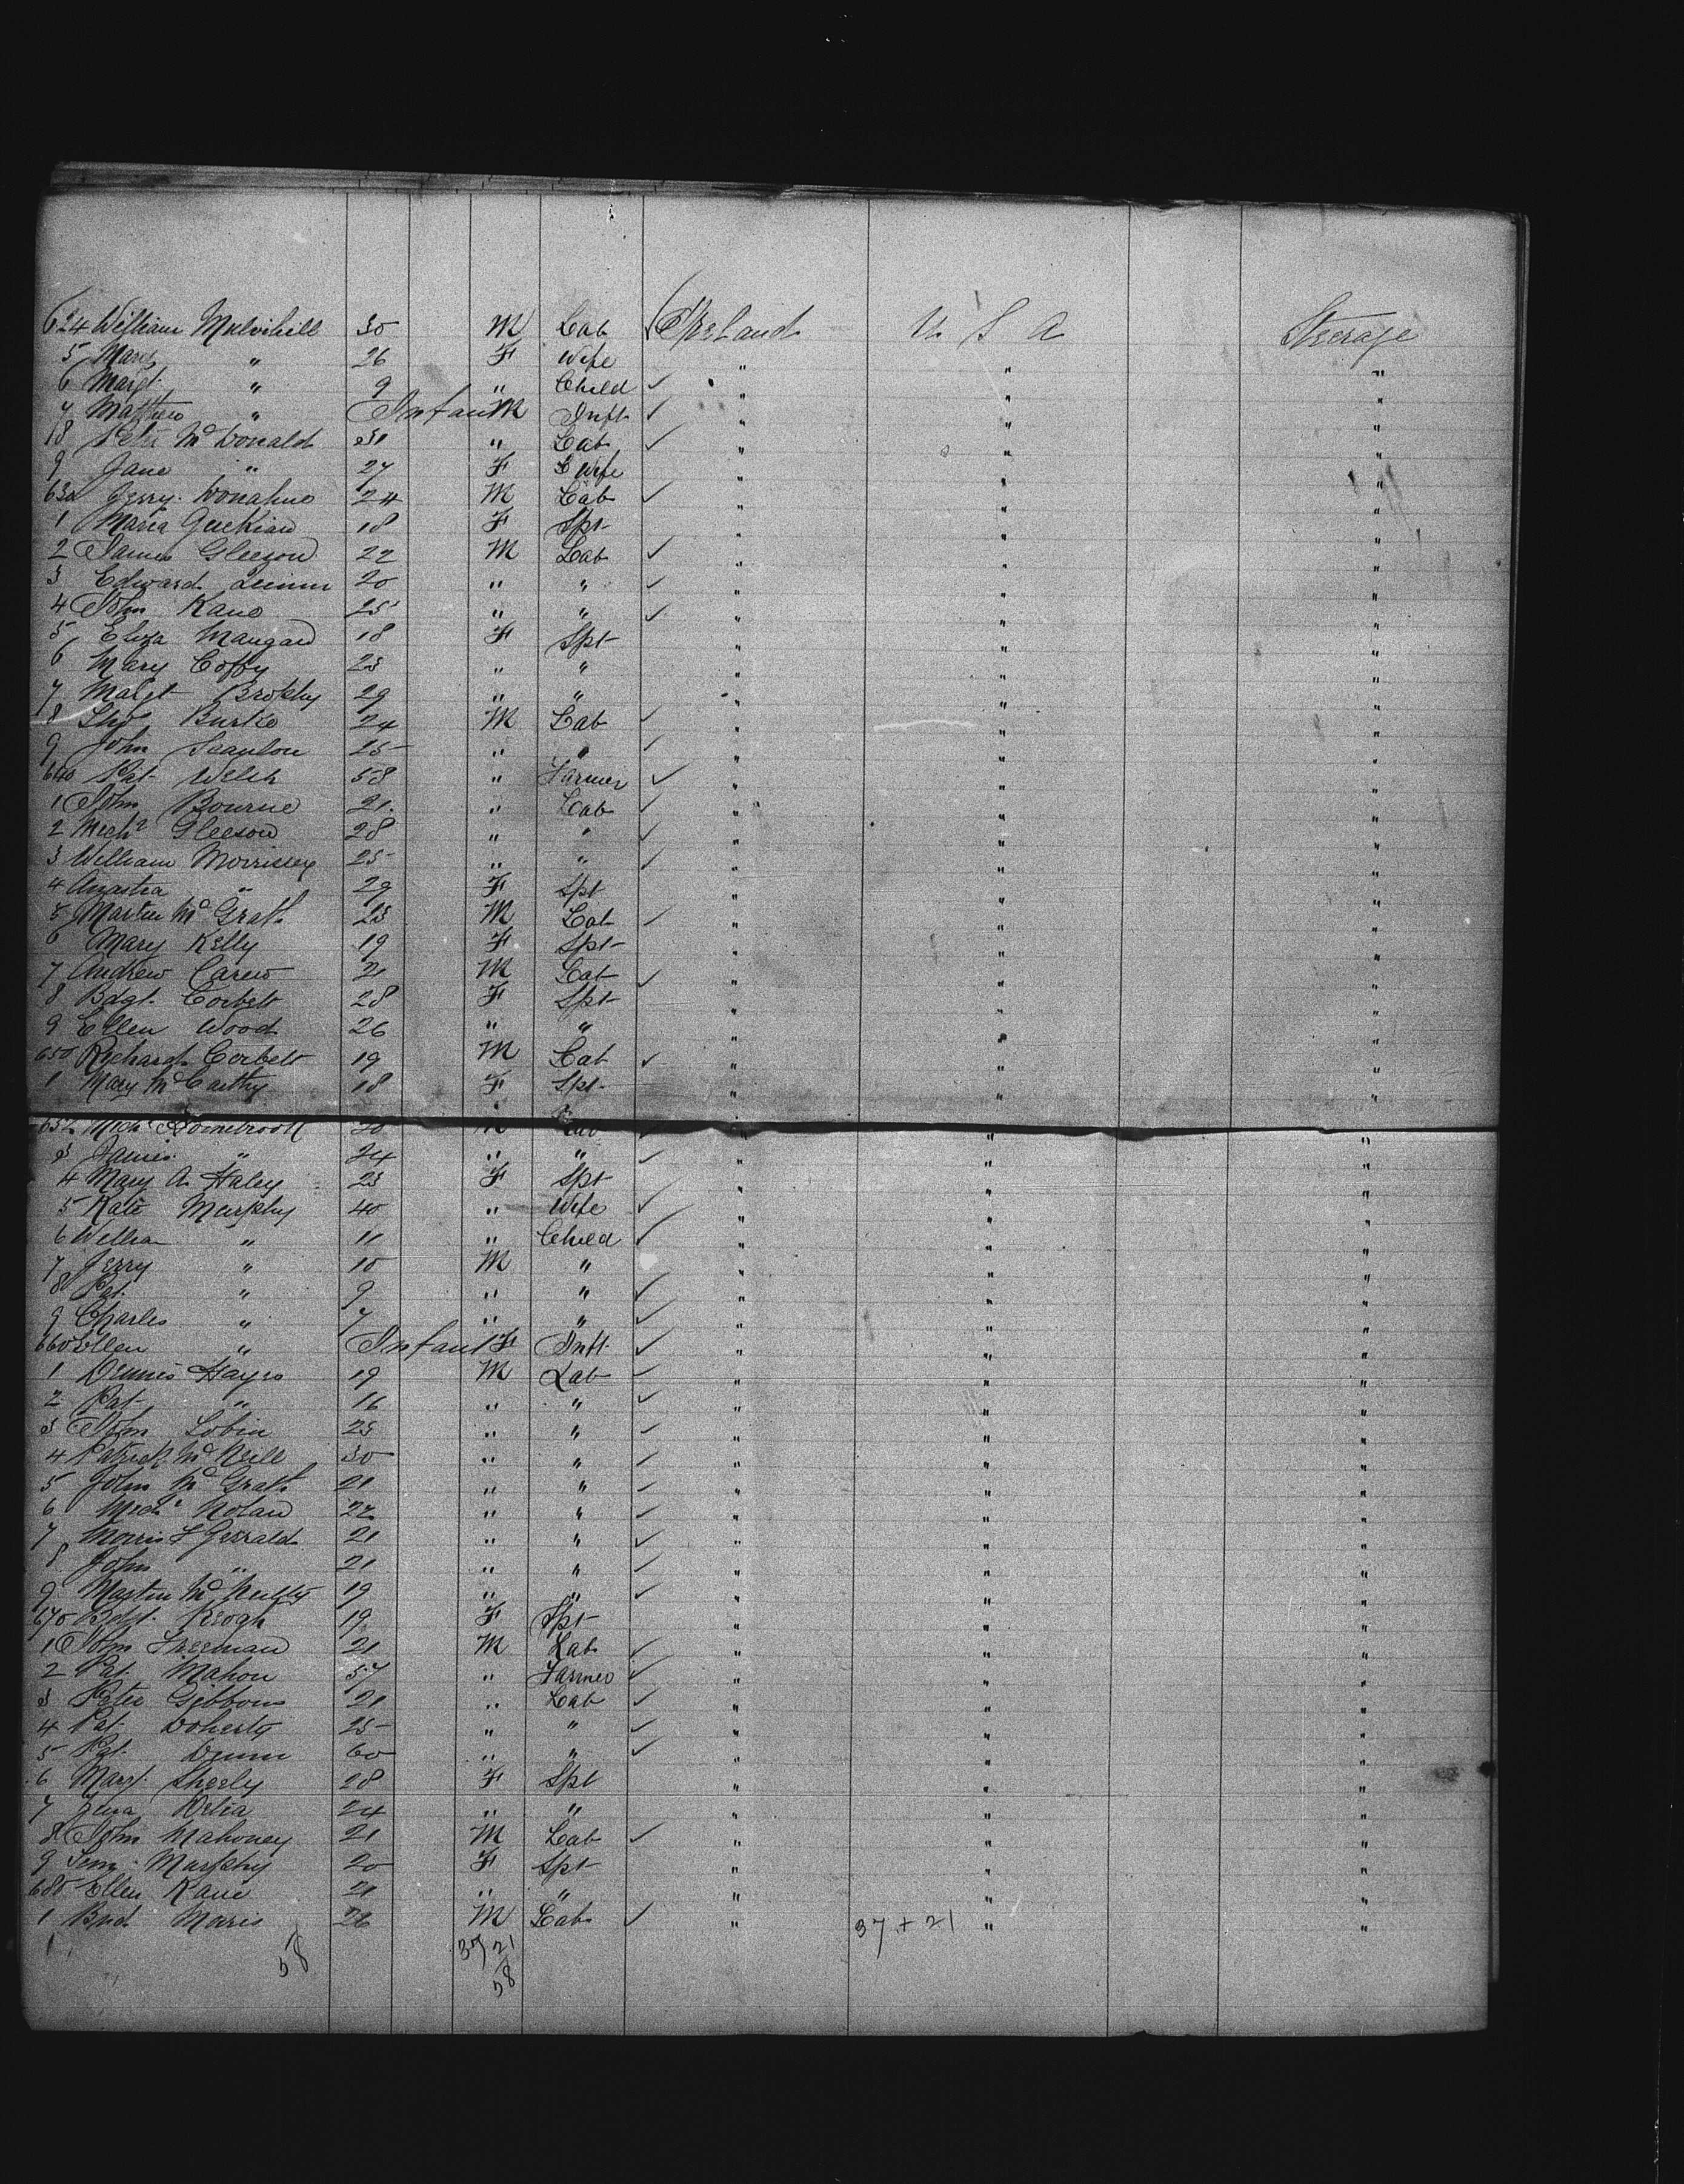 624 William Mulvihill 30 M Lab ✓ Ireland U S A Steerage
5 Mary " 26 F Wife " " "
6 Margt. " 9 " Child ✓ " " "
7 Mathew " Infant M Inft ✓ " " "
18 Peter McDonald 31 " Lab ✓ " " "
9 Jane " 27 F Wife " " "
630 Jerry Donahue 24 M Lab ✓ " " "
1 Maria 18 F Spt " " "
2 James Gleeson 22 M Lab ✓ " " "
3 Edward Quinn 20 " " ✓ " " "
4 John Kane 25 " " ✓ " " "
5 Eliza Mangan 18 F Spt " " "
6 Mary Coffy 23 " " " " "
7 Margt Brophy 29 " " " " "
8 Thos Burke 24 M Lab ✓ " " "
9 John Scanlon 25 " " ✓ " " "
640 Pat Welsh 58 " Farmer ✓ " " "
1 John Bourne 21 " Lab ✓ " " "
2 Michl Gleeson 28 " " ✓ " " "
3 William Morrissey 25 " " ✓ " " "
4 Anastia " 29 F Spt " " "
5 Martin McGrath 23 M Lab ✓ " " "
6 Mary Kelly 19 F Spt " " "
7 Andrew Carew 21 M Lab ✓ " " "
8 Bdgt. Corbett 28 F Spt " " "
9 Ellen Wood 26 " " " " "
650 Richard Corbett 19 M Lab ✓ " " "
1 Mary McCarthy 18 F Spt " " "
652 Mich 30 M Lab ✓ " " "
3 James " 24 " " ✓ " " "
4 Mary A Haley 23 F Spt " " "
5 Kate Murphy 40 " Wife ✓ " " "
6 William " 11 " Child ✓ " " "
7 Jerry " 10 M " " " "
8 Pat. " 9 " " ✓ " " "
9 Charles " 7 " " ✓ " " "
660 Ellen " Infant F Inft. ✓ " " "
1 Dennis Hayes 19 M Lab ✓ " " "
2 Pat " 16 " " ✓ " " "
3 John Tobin 23 " " ✓ " " "
4 Patrick McNeill 30 " " ✓ " " "
5 John McGrath 21 " " ✓ " " "
6 Michl Nolan 22 " " ✓ " " "
7 Morris F Gerrald 21 " " ✓ " " "
8 John " 21 " " ✓ " " "
9 Martin 19 " " ✓ " " "
670 Bdgt. Keogh 19 F Spt " " "
1 John Freeman 21 M Lab ✓ " " "
2 Pat. Mahon 57 " Farmer ✓ " " "
3 Peter Gibbons 21 " Lab ✓ " " "
4 Pat. Doherty 25 " " ✓ " " "
5 Pat. Dunn 60 " " ✓ " " "
6 Margt. Sheely 28 F Spt " " "
7 Delia 24 " " " " "
8 John Mahoney 21 M Lab ✓ " " "
9 Murphy 20 F Spt " " "
680 Ellen Kane 21 " " " " "
1 Brd. Maris 26 M Lab ✓ " 37 + 21 " "
58 37 21
58